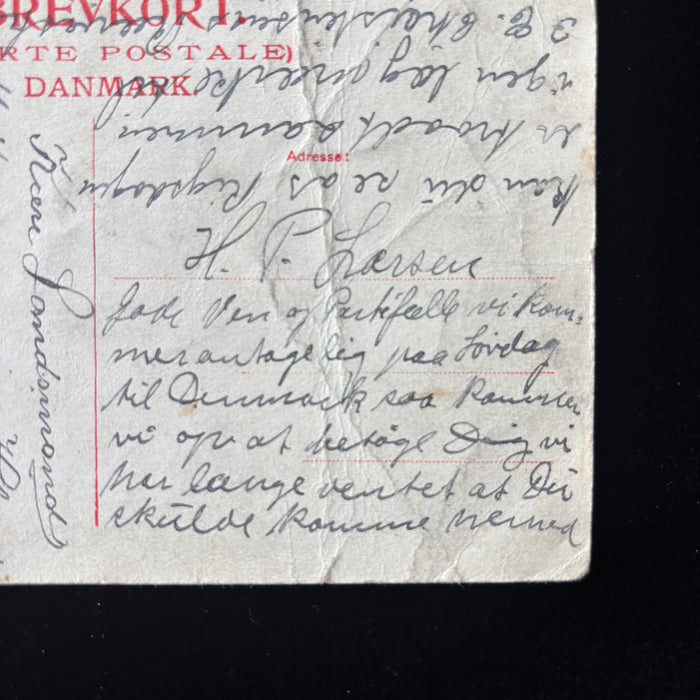 BREVKORT.
RTE POSTALE)
DANMARK.
Adresse:
H. P. Larsen
Gode Ven og Partifælle vi kom-
mer antagelig paa Lövdag
til Denmark saa kommer
vi op at betöge Dig vi
har længe ventet at Du
skulde komme herned
Kære Landsmand
kan du
er traadt sammen
igen
J. C. Christensen